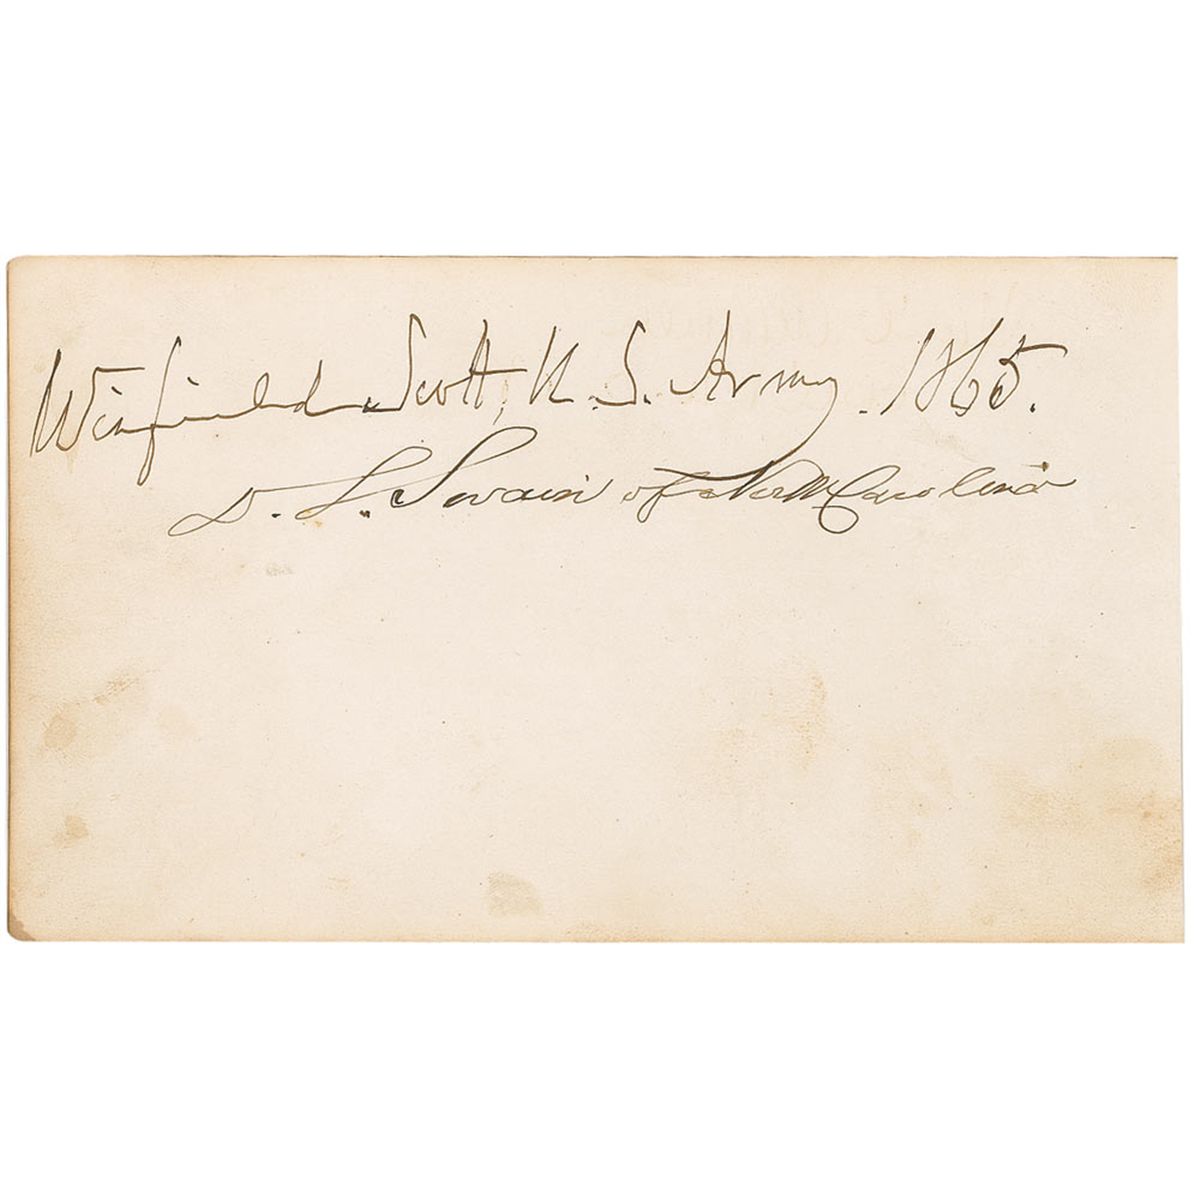 Winfield Scott, U.S. Army. 1865.
D. L. Swain of North Carolina